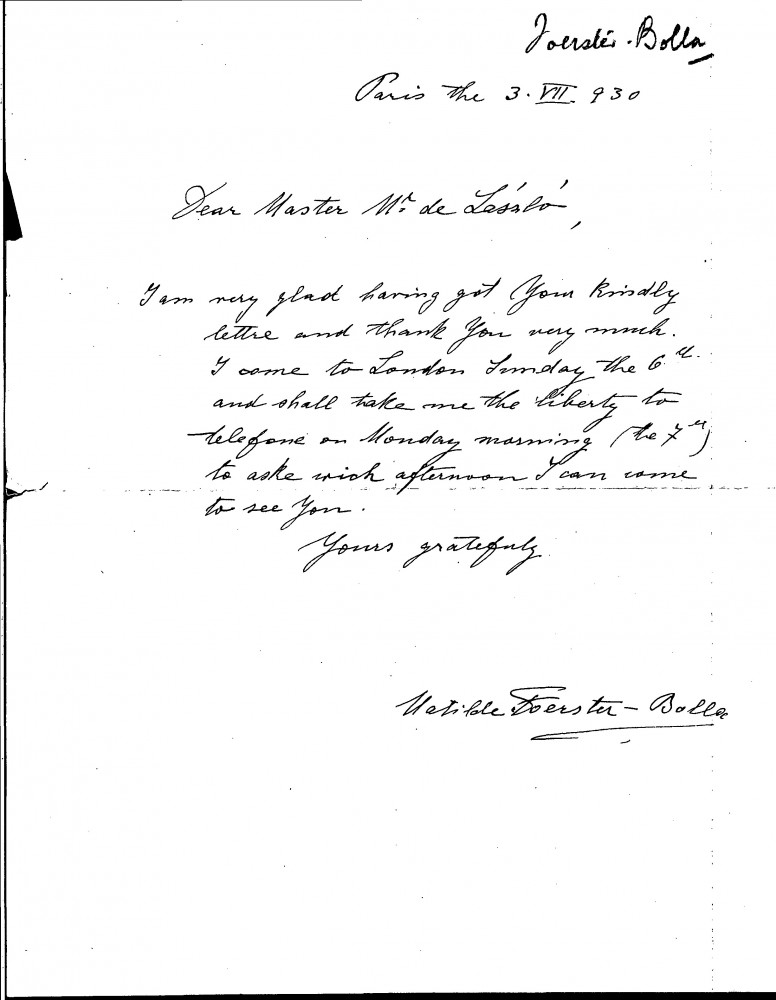 Foerster-Bolla
Paris the 3. VII. 930
Dear Master Mr. de László,
I am very glad having got Your kindly
lettre and thank You very much.
I come to London Sunday the 6th.
and shall take me the liberty to
telefone on Monday morning (the 7th)
to aske wich afternoon I can come
to see You.
Yours gratefuly
Matilde Foerster - Bolla